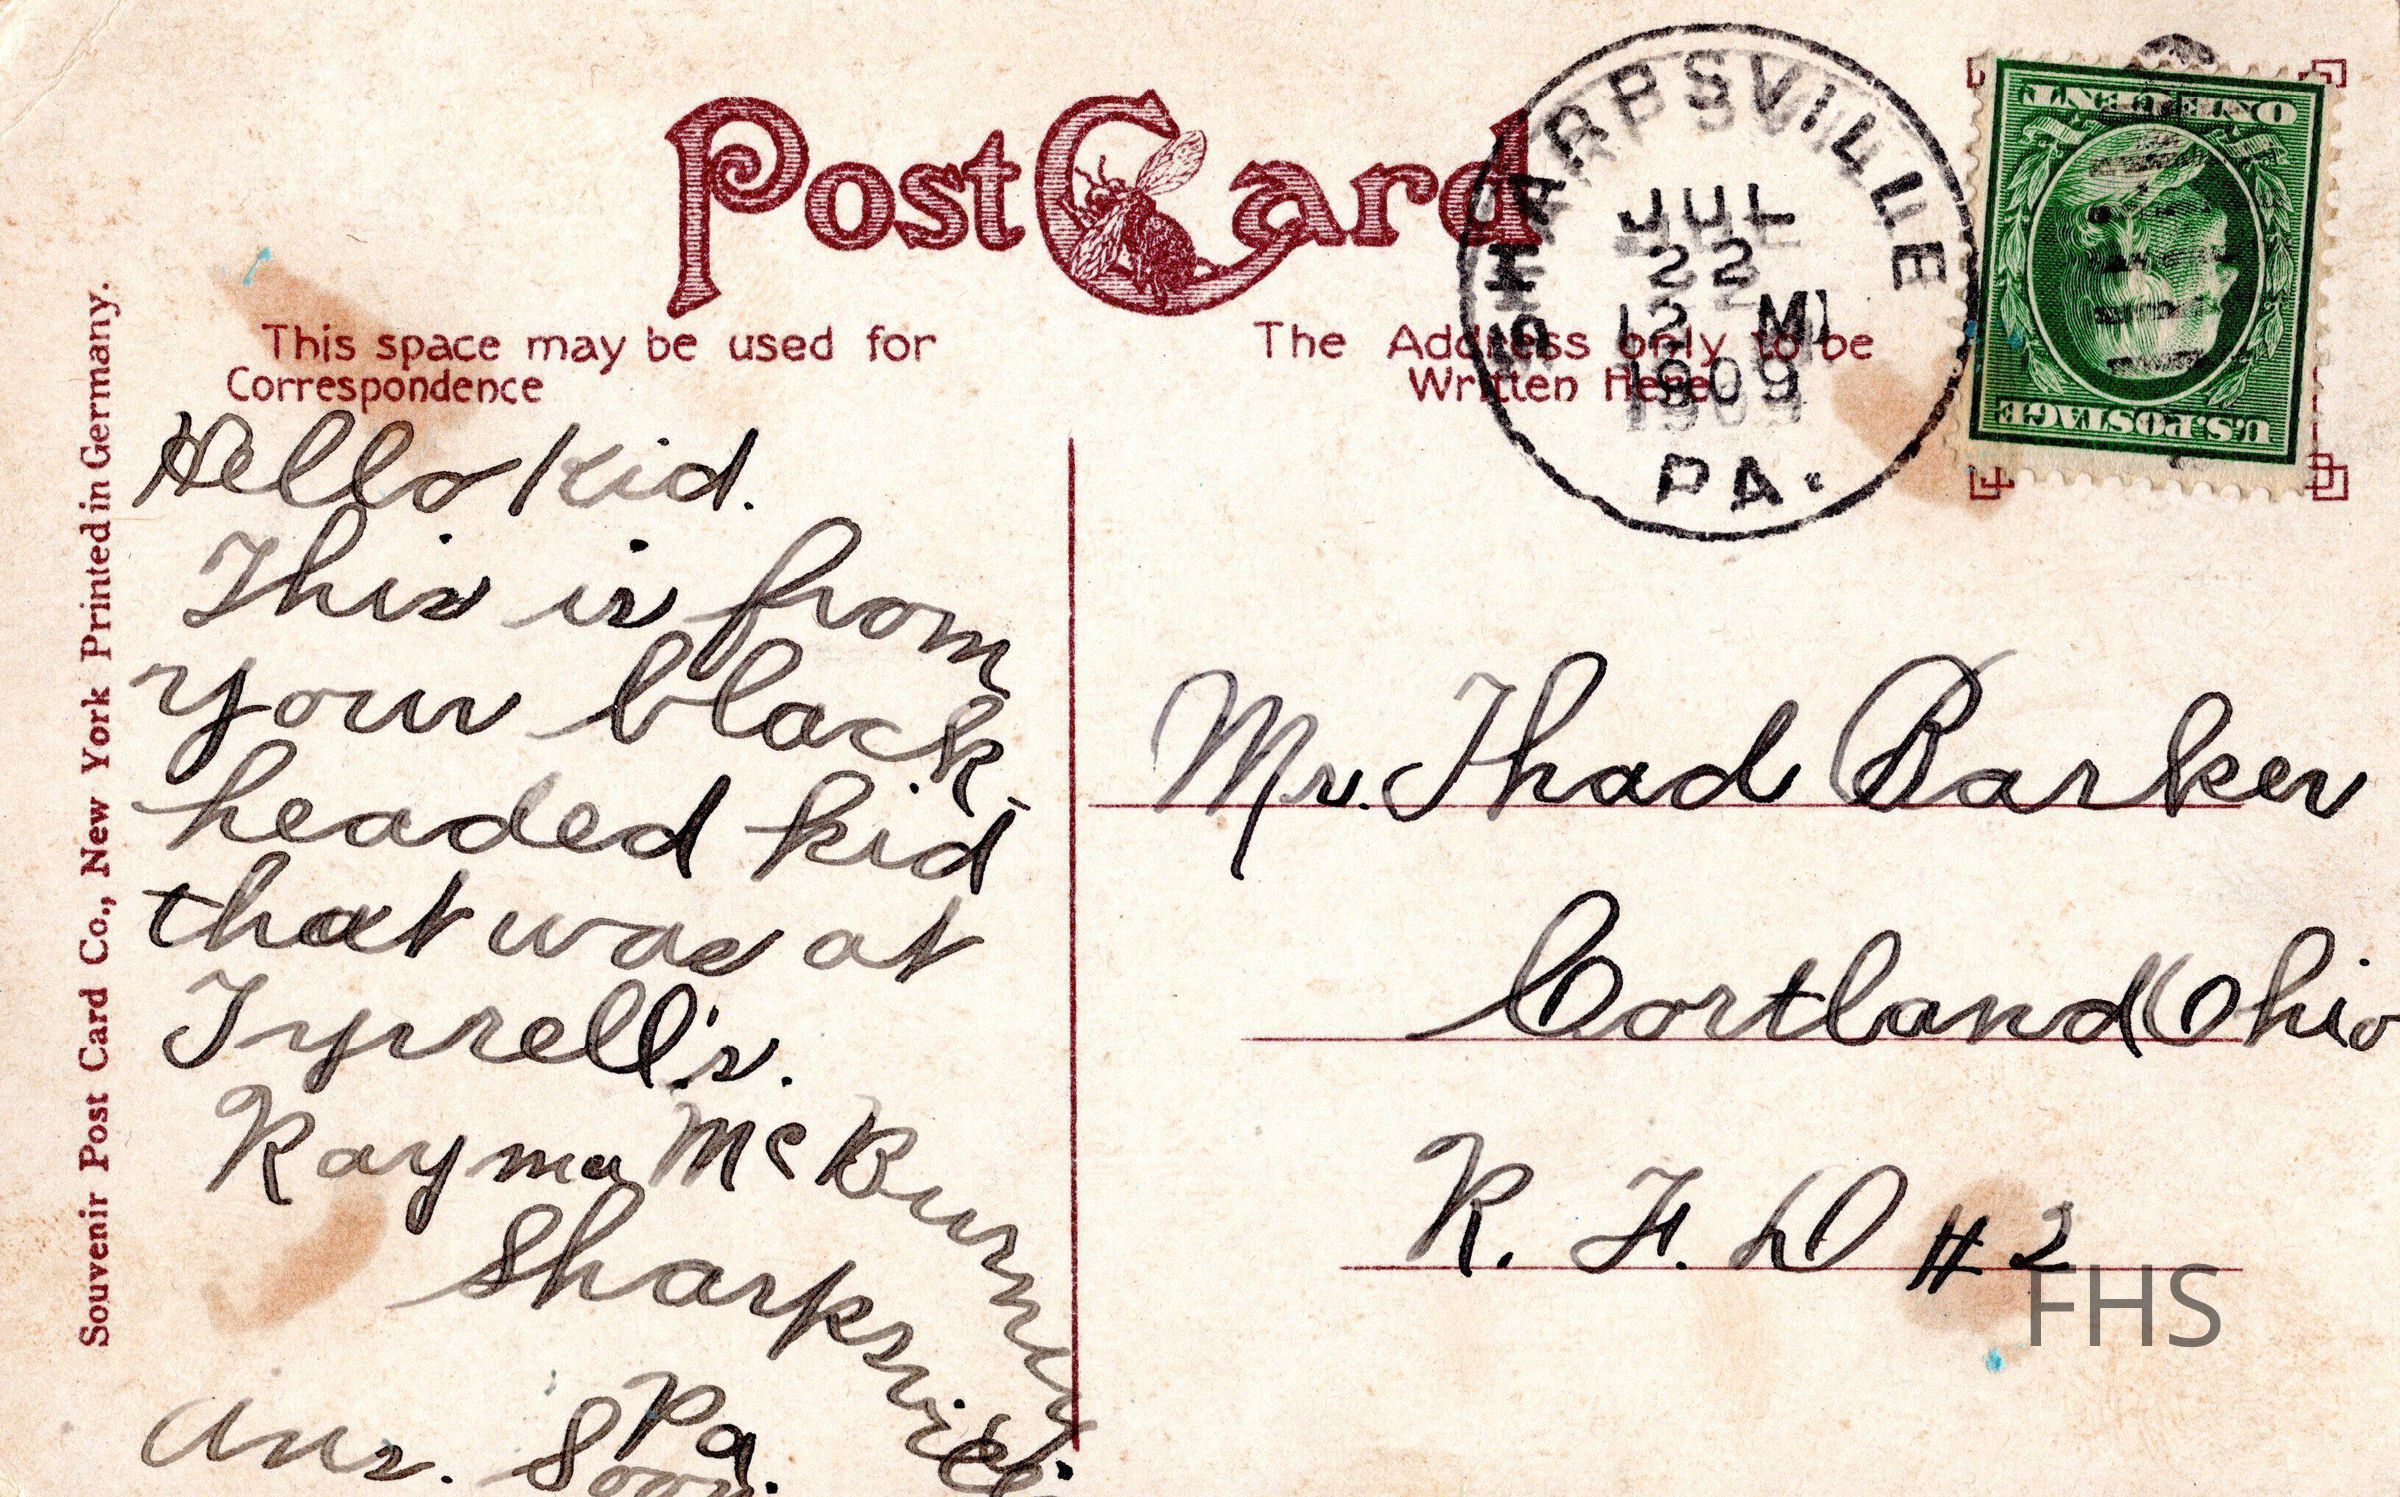 Post Card
SHARPSVILLE
JUL
22
12 M
1909
PA.
ONE CENT
U.S. POSTAGE
This space may be used for
Correspondence
The Address only to be
Written Here
Souvenir Post Card Co., New York Printed in Germany.
Hello Kid.
This is from
your black-
headed kid
that was at
Tyrrell's.
Rayma McBurney
Sharpsville
Pa.
Ans. Soon.
Mr. Thad Barker
Cortland Ohio
R. F. D # 2
FHS